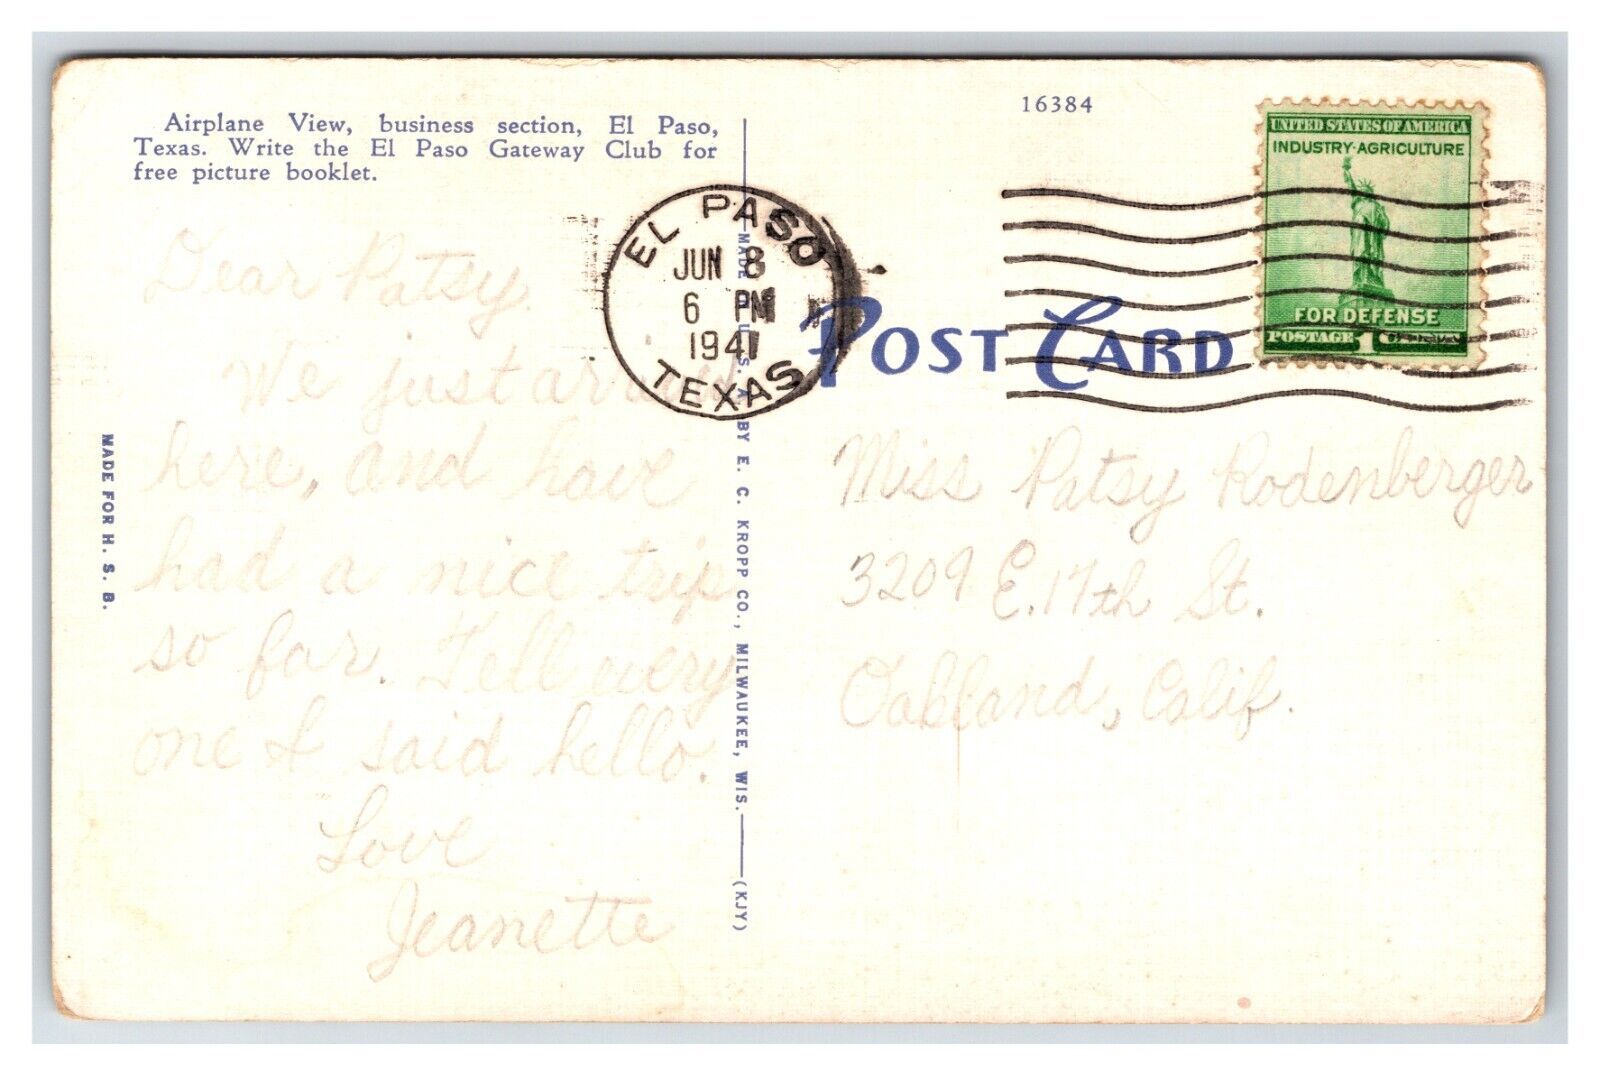 Airplane View, business section, El Paso,
Texas. Write the El Paso Gateway Club for
free picture booklet.
16384
UNITED STATES OF AMERICA
INDUSTRY·AGRICULTURE
FOR DEFENSE
POSTAGE 1
EL PASO
JUN 8
6 PM
1941
TEXAS
POST CARD
Dear Patsy.
We just arrived
here, and have
had a nice trip
so far. Tell every
one I said hello.
Love
Jeanette
Miss Patsy Rodenberger
3209 E. 17th St.
Oakland, Calif.
MADE FOR H. S. B.
MADE IN U. S. A. BY E. C. KROPP CO., MILWAUKEE, WIS.
(KJY)